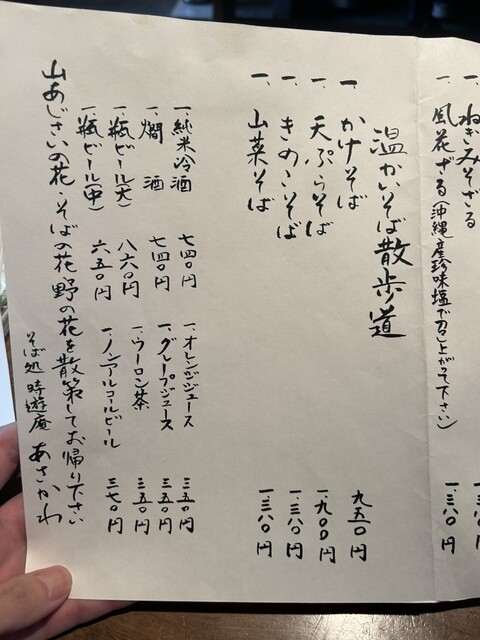 一、ねぎみそざる 一、三八〇
一、風花ざる(沖縄産珍味塩で召し上がって下さい) 一、三八〇円
温かいそば散歩道
一、かけそば 九五〇円
一、天ぷらそば 一、九〇〇円
一、きのこそば 一、三八〇円
一、山菜そば 一、三八〇円
一、純米冷酒 七四〇円
一、燗酒 七四〇円
一、瓶ビール(大) 八六〇円
一、瓶ビール(中) 六五〇円
一、オレンジジュース 三五〇円
一、グレープジュース 三五〇円
一、ウーロン茶 三五〇円
一、ノンアルコールビール 三七〇円
山あじさいの花・そばの花・野の花を散策してお帰り下さい
そば処 時遊庵 あさかわ